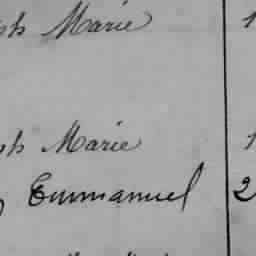 Marie 1
Marie 1
Emmanuel 2